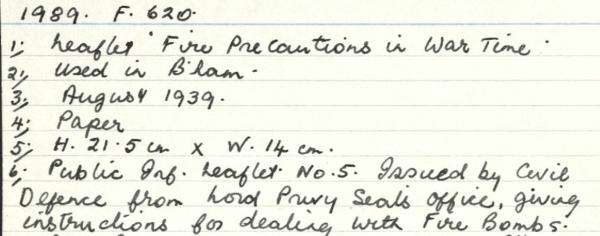 1989. F. 620.
1; Leaflet 'Fire Precautions in War Time'
2; Used in B'ham.
3; August 1939.
4; Paper
5; H. 21.5 cm x W. 14 cm.
6; Public Inf. Leaflet No. 5. Issued by Civil
Defence from Lord Privy Seals Office, giving
instructions for dealing with Fire Bombs.